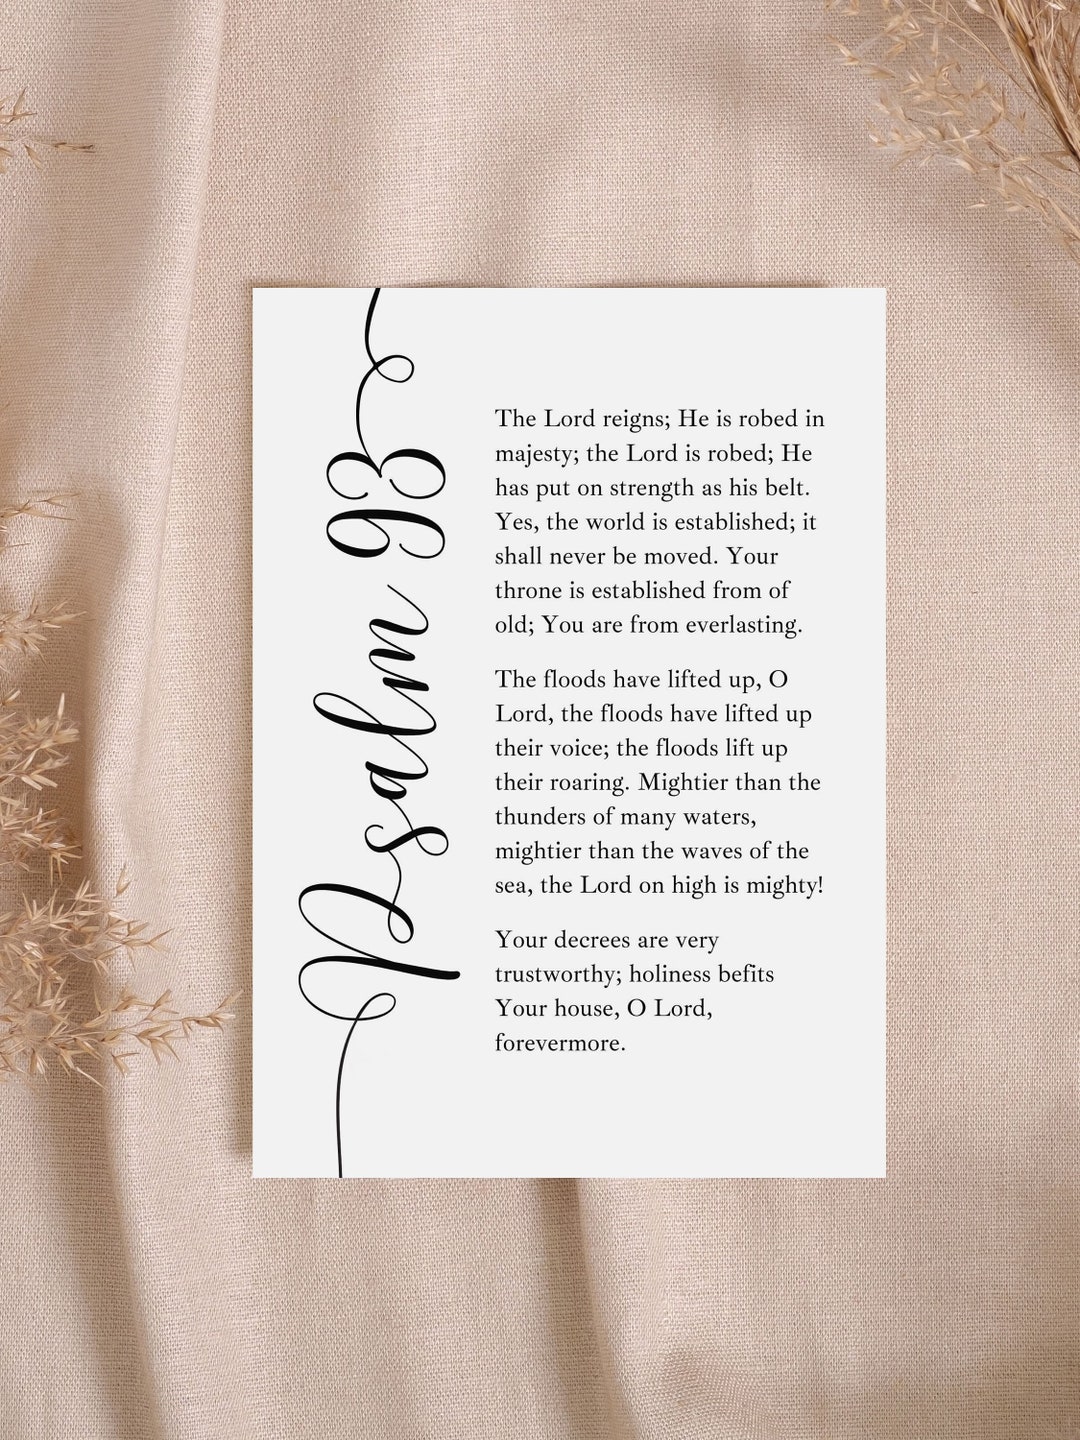 Psalm 93
The Lord reigns; He is robed in
majesty; the Lord is robed; He
has put on strength as his belt.
Yes, the world is established; it
shall never be moved. Your
throne is established from of
old; You are from everlasting.
The floods have lifted up, O
Lord, the floods have lifted up
their voice; the floods lift up
their roaring. Mightier than the
thunders of many waters,
mightier than the waves of the
sea, the Lord on high is mighty!
Your decrees are very
trustworthy; holiness befits
Your house, O Lord,
forevermore.